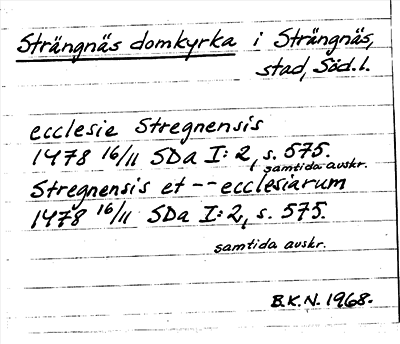 Strängnäs domkyrka i Strängnäs,
stad, Söd. l.
ecclesie Stregnensis
1478 16/11 SDa I:2, s. 575.
samtida avskr.
Stregnensis et -- ecclesiarum
1478 16/11 SDa I:2, s. 575.
samtida avskr.
B.K.N. 1968.